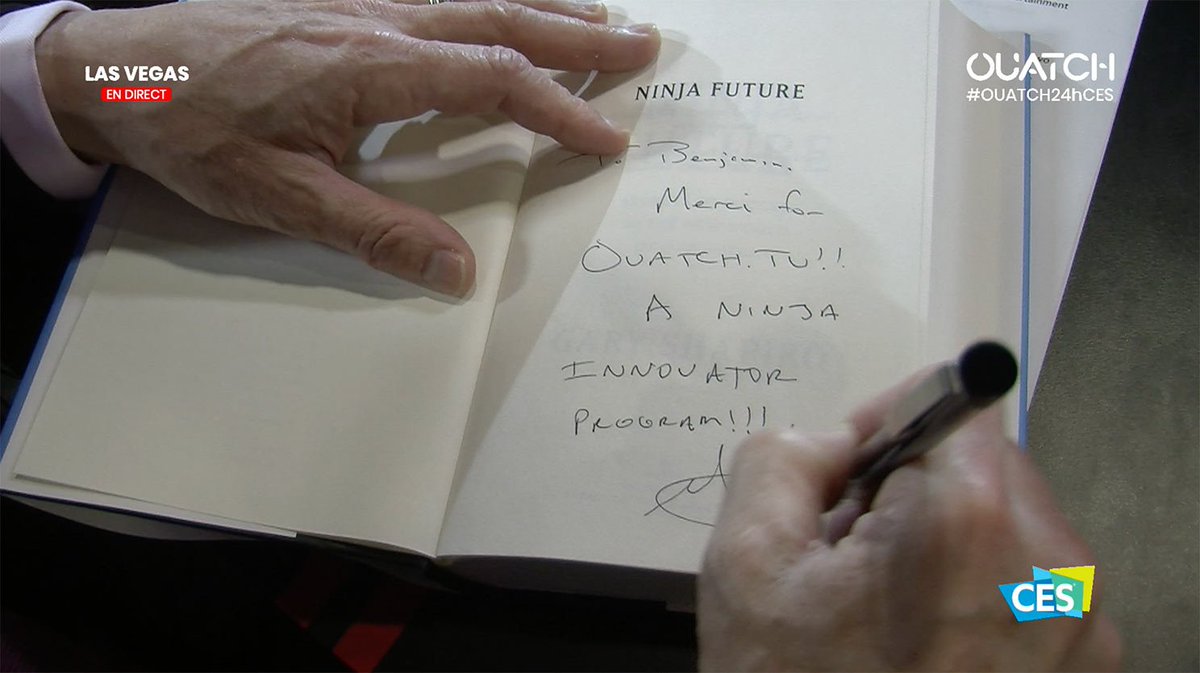 tainment
LAS VEGAS
EN DIRECT
OUATCH
#OUATCH24hCES
NINJA FUTURE
To Benjamin.
Merci for
OUATCH.TV!!
A NINJA
INNOVATOR
PROGRAM!!!
CES